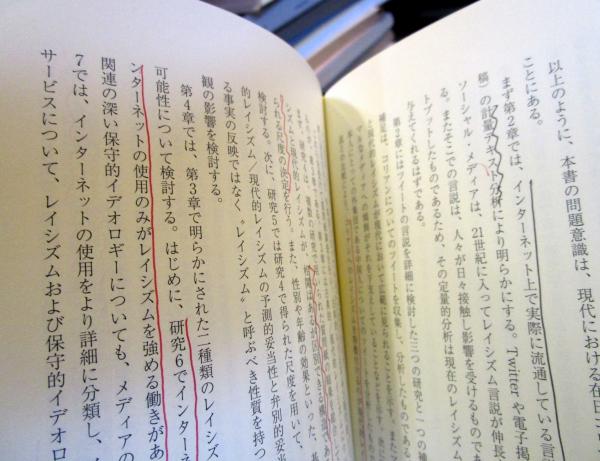 以上のように、本書の問題意識は、現代における在日コリ
ことにある。
まず第2章では、インターネット上で実際に流通している言
稿）の計量テキスト分析により明らかにする。Twitterや電子掲
ソーシャル・メディアは、21世紀に入ってレイシズム言説が伸長
る。またそこでの言説は、人々が日々接触し影響を受けるものであ
トプットしたものであるため、その定量的分析は現在のレイシズム
与えてくれるはずである。
第2章にはツイートの言説を詳細に検討した三つの研究と一つの補
補足は、コリアンについてのツイートを収集し、分析したものである
と現代的レイシズムが現在において広範に見られることを示す。また
検討する。次に、研究5では研究4で得られた尺度を用いて、
的レイシズム／現代的レイシズムの予測的妥当性と弁別的妥当
る事実の反映ではなく、“レイシズム”と呼ぶべき性質を持つ
観の影響を検討する。
第4章では、第3章で明らかにされた二種類のレイシズ
可能性について検討する。はじめに、研究6でインターネ
ンターネットの使用のみがレイシズムを強める働きがあ
関連の深い保守的イデオロギーについても、メディアの
7では、インターネットの使用をより詳細に分類し、
サービスについて、レイシズムおよび保守的イデオロ